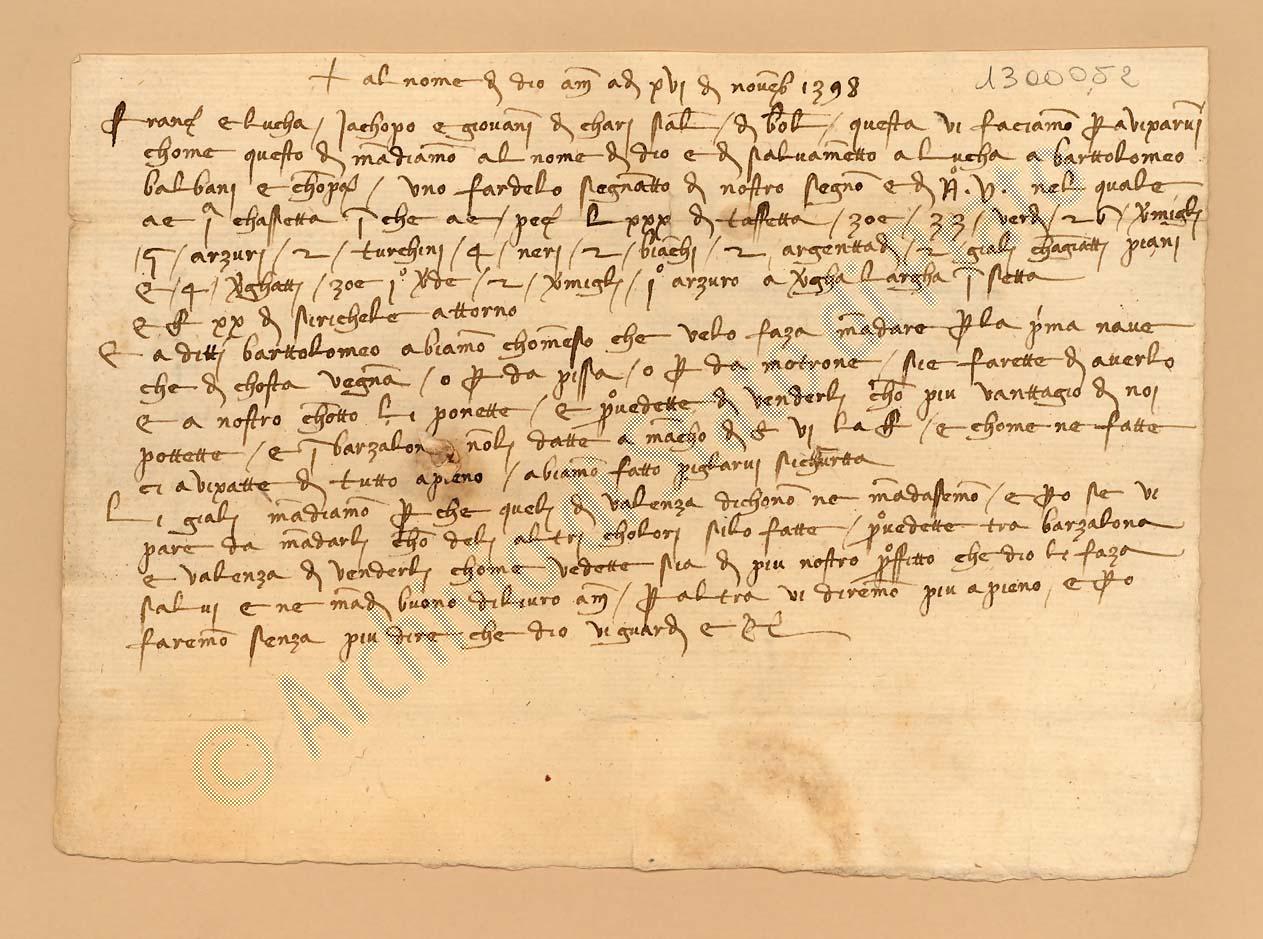 + al nome d dio am ad xvi d novēb 1398
1300052
Franc e Lucha / Jachopo e giovanī d chari sal / d bol / questa vi faciamo p avixarvi
chome questo dì mādiamo al nome d dio e d salvametto a Lucha a barttolomeo
balbani e chōpa / uno fardelo segnatto d nostro segno e d nel quale
ae chassetta che ae / peç Lxxx d taffetta / zoe / 33 / verdi / 26 / vmigli
/ arzuri / 2 / turchini / 4 / neri / 2 / biāchi / 2 argenttad / 2 giali chāgiatti piani
E / 4 / vghatti / zoe 1° vde / 2 / vmigli / 1° arzuro a vgha largha ī setta
E xx d sirichele attorno
E a ditti barttolomeo abiamo chomesso che velo faza mādare p la pma nave
che d chosta vegna / o p da pissa / o p da motrone / sie farette d averlo
E a nostro chōtto li ponette / e pvedette d venderli chō piu vanttagio d noi
pottette / e ī barzalona nōli datte a mācho d vi la / e chome ne fatte
ci avixatte d tutto apieno / abiamo fatto pigliarvi sichurtta
Li giali mādiamo p che queli d valenza dichono ne mādassemo / e po se vi
pare da mādarli chō deli altri cholori silo fatte / pvedette tra barzalona
e valenza d venderli chome vedette sia d piu nostro pffitto che dio li faza
salvi e ne mād buono dilivro am / p altra vi diremo piu apieno / e po
faremo senza piu dire che dio vi guardi e
© Archivio di Stato di Prato